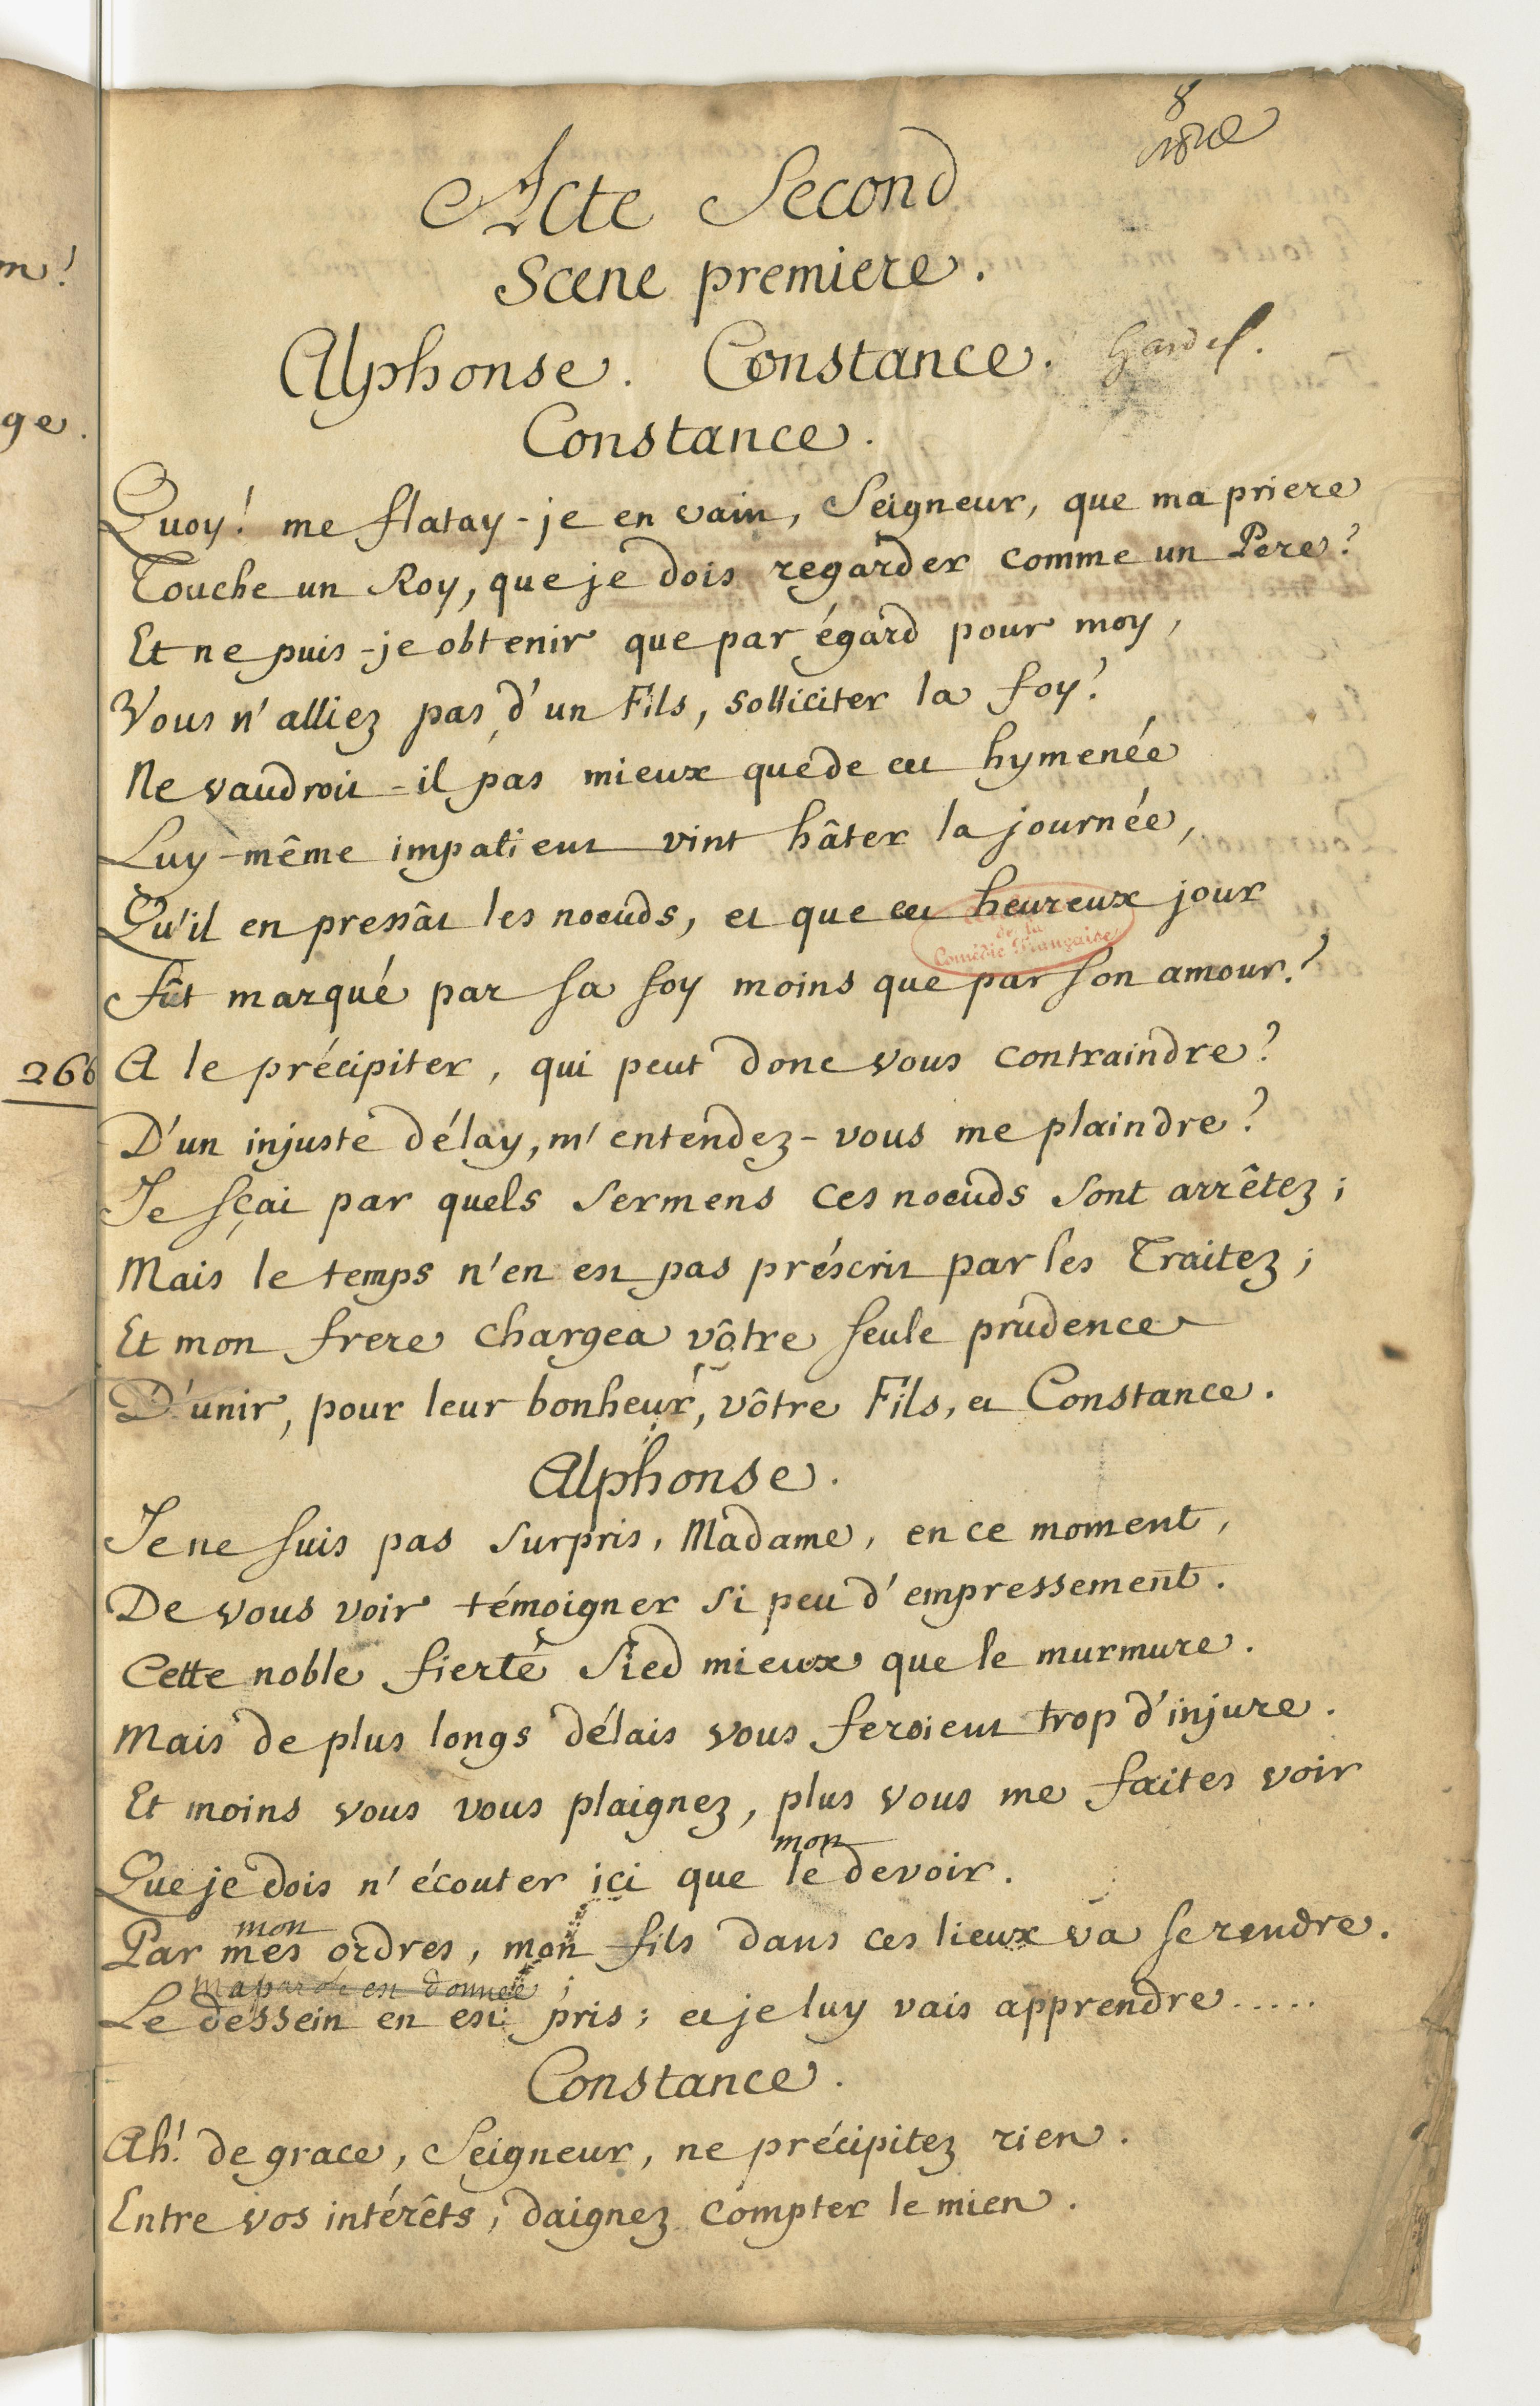 8
Acte Second
Scene premiere.
Alphonse. Constance.
Constance.
Quoy! me flatay-je en vain, Seigneur, que ma priere
Touche un Roy, que je dois regarder comme un Pere?
Et ne puis-je obtenir que par égard pour moy,
Vous n'alliez pas, d'un Fils, solliciter la foy?
Ne vaudroit-il pas mieux que de cet hymenée
Luy-même impatient vint hâter la journée,
Qu'il en pressât les noeuds, et que cet heureux jour
de la
Comédie Française
Fût marqué par sa foy moins que par son amour?
266
A le précipiter, qui peut donc vous contraindre?
D'un injuste délay, m'entendez-vous me plaindre?
Je sçai par quels sermens ces noeuds sont arrêtez;
Mais le temps n'en est pas préscrit par les Traitez;
Et mon frere chargea vôtre seule prudence
D'unir, pour leur bonheur, vôtre Fils, et Constance.
Alphonse.
Je ne suis pas surpris, Madame, en ce moment,
De vous voir témoigner si peu d'empressement.
Cette noble fierté sied mieux que le murmure.
Mais de plus longs délais vous feroient trop d'injure.
Et moins vous vous plaignez, plus vous me faites voir
mon
Que je dois n'écouter ici que le devoir.
mon
Par mes ordres, mon fils dans ces lieux va se rendre.
ma parole en est donnée;
Le dessein en est pris; et je luy vais apprendre.....
Constance.
Ah! de grace, Seigneur, ne précipitez rien.
Entre vos intérêts, daignez compter le mien.